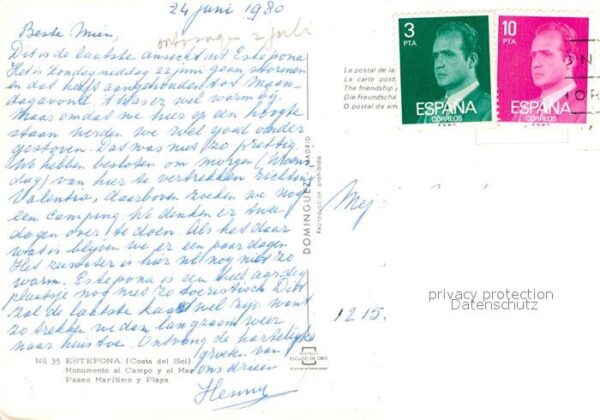 24 juni 1980
Beste Mien,
ontvangen 2 juli
Dit is de laatste ansicht uit Estepona
Het is zondagmiddag 22 juni gaan stormen
en dat heeft aangehouden tot Maan-
dagavond. was er wel warm bij
Maar omdat we hier op een hoogte
staan werden we wel goed onder
gestoven. Dat was niet zo prettig.
We hebben besloten om morgen (Woens
dag) van hier te vertrekken richting
Valentia, daarboven zoeken we nog
een camping We denken er twee
dagen over te doen. Als het daar
wat is blijven we er een paar dagen
Het zeewater is hier nog niet zo
warm. Estepona is een heel aardig
plaatsje nog niet zo toeristisch Dit
zal de laatste kaart wel zijn want
zo trekken we dan langzaam weer
naar huis toe. Ontvang de hartelijke
groeten van
ons drieën
Henny
No 35 ESTEPONA (Costa del Sol)
Monumento al Campo y el Mar
Paseo Marítimo y Playa
DOMINGUEZ - MADRID
Reproducción prohibida
POSTALES
ESCUDO DE ORO
La postal de la
La carte post
The friendship
Die Freundschaf
O postal da am
3
PTA
ESPAÑA
CORREOS
10
PTA
ESPAÑA
CORREOS
Mej
1215.
privacy protection
Datenschutz